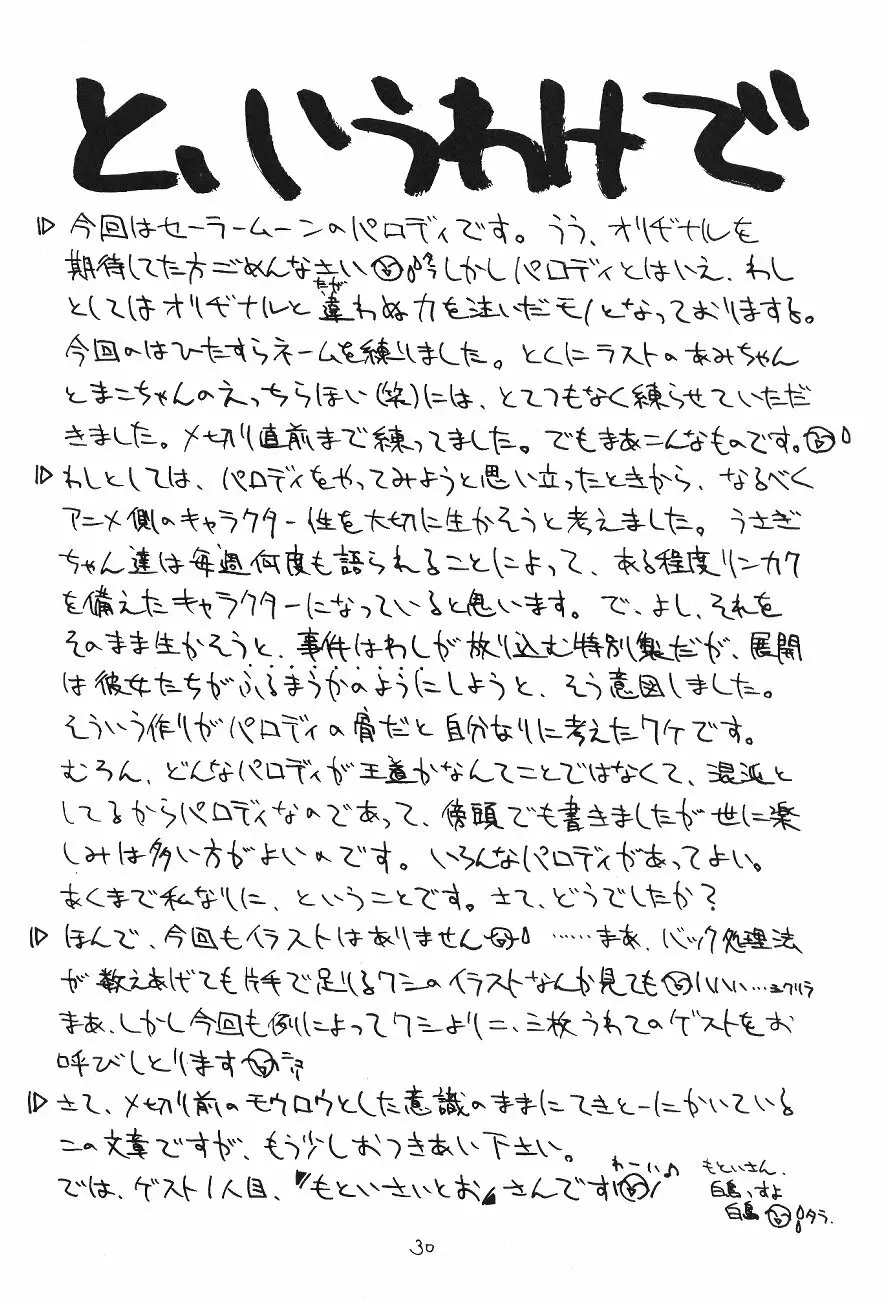 と、いうわけで
▷ 今回はセーラームーンのパロディです。うう、オリヂナルを
期待してた方ごめんなさい しかしパロディとはいえ、わし
としてはオリヂナルと違(たが)わぬ力を注いだモノとなっておりまする。
今回のはひたすらネームを練りました。とくにラストのあみちゃん
とまこちゃんのえっちらほい(笑)には、とてつもなく練らせていただ
きました。〆切り直前まで練ってました。でもまあこんなものです。
▷ わしとしては、パロディをやってみようと思い立ったときから、なるべく
アニメ側のキャラクター性を大切に生かそうと考えました。うさぎ
ちゃん達は毎週何度も語られることによって、ある程度リンカク
を備えたキャラクターになっていると思います。で、よし、それを
そのまま生かそうと、事件はわしが放り込む特別製だが、展開
は彼女たちがふるまうかのようにしようと、そう意図しました。
そういう作りがパロディの骨だと自分なりに考えたワケです。
むろん、どんなパロディが王道かなんてことではなくて、混沌と
してるからパロディなのであって、傍頭でも書きましたが世に楽
しみは多い方がよいのです。いろんなパロディがあってよい。
あくまで私なりに、ということです。さて、どうでしたか?
▷ ほんで、今回もイラストはありません ……まあ、バック処理法
が数えあげても片手で足りるワシのイラストなんか見ても いいい…
まあ、しかし今回も例によってワシより二、三枚うわてのゲストをお
呼びしとります
▷ さて、〆切り前のモウロウとした意識のままにてきとーにかいている
この文章ですが、もう少しおつきあい下さい。
では、ゲスト1人目、〝もといさいとお〟さんです!
わーい♪
もといさん、
白鳥っすよ
白鳥 タラ.
30